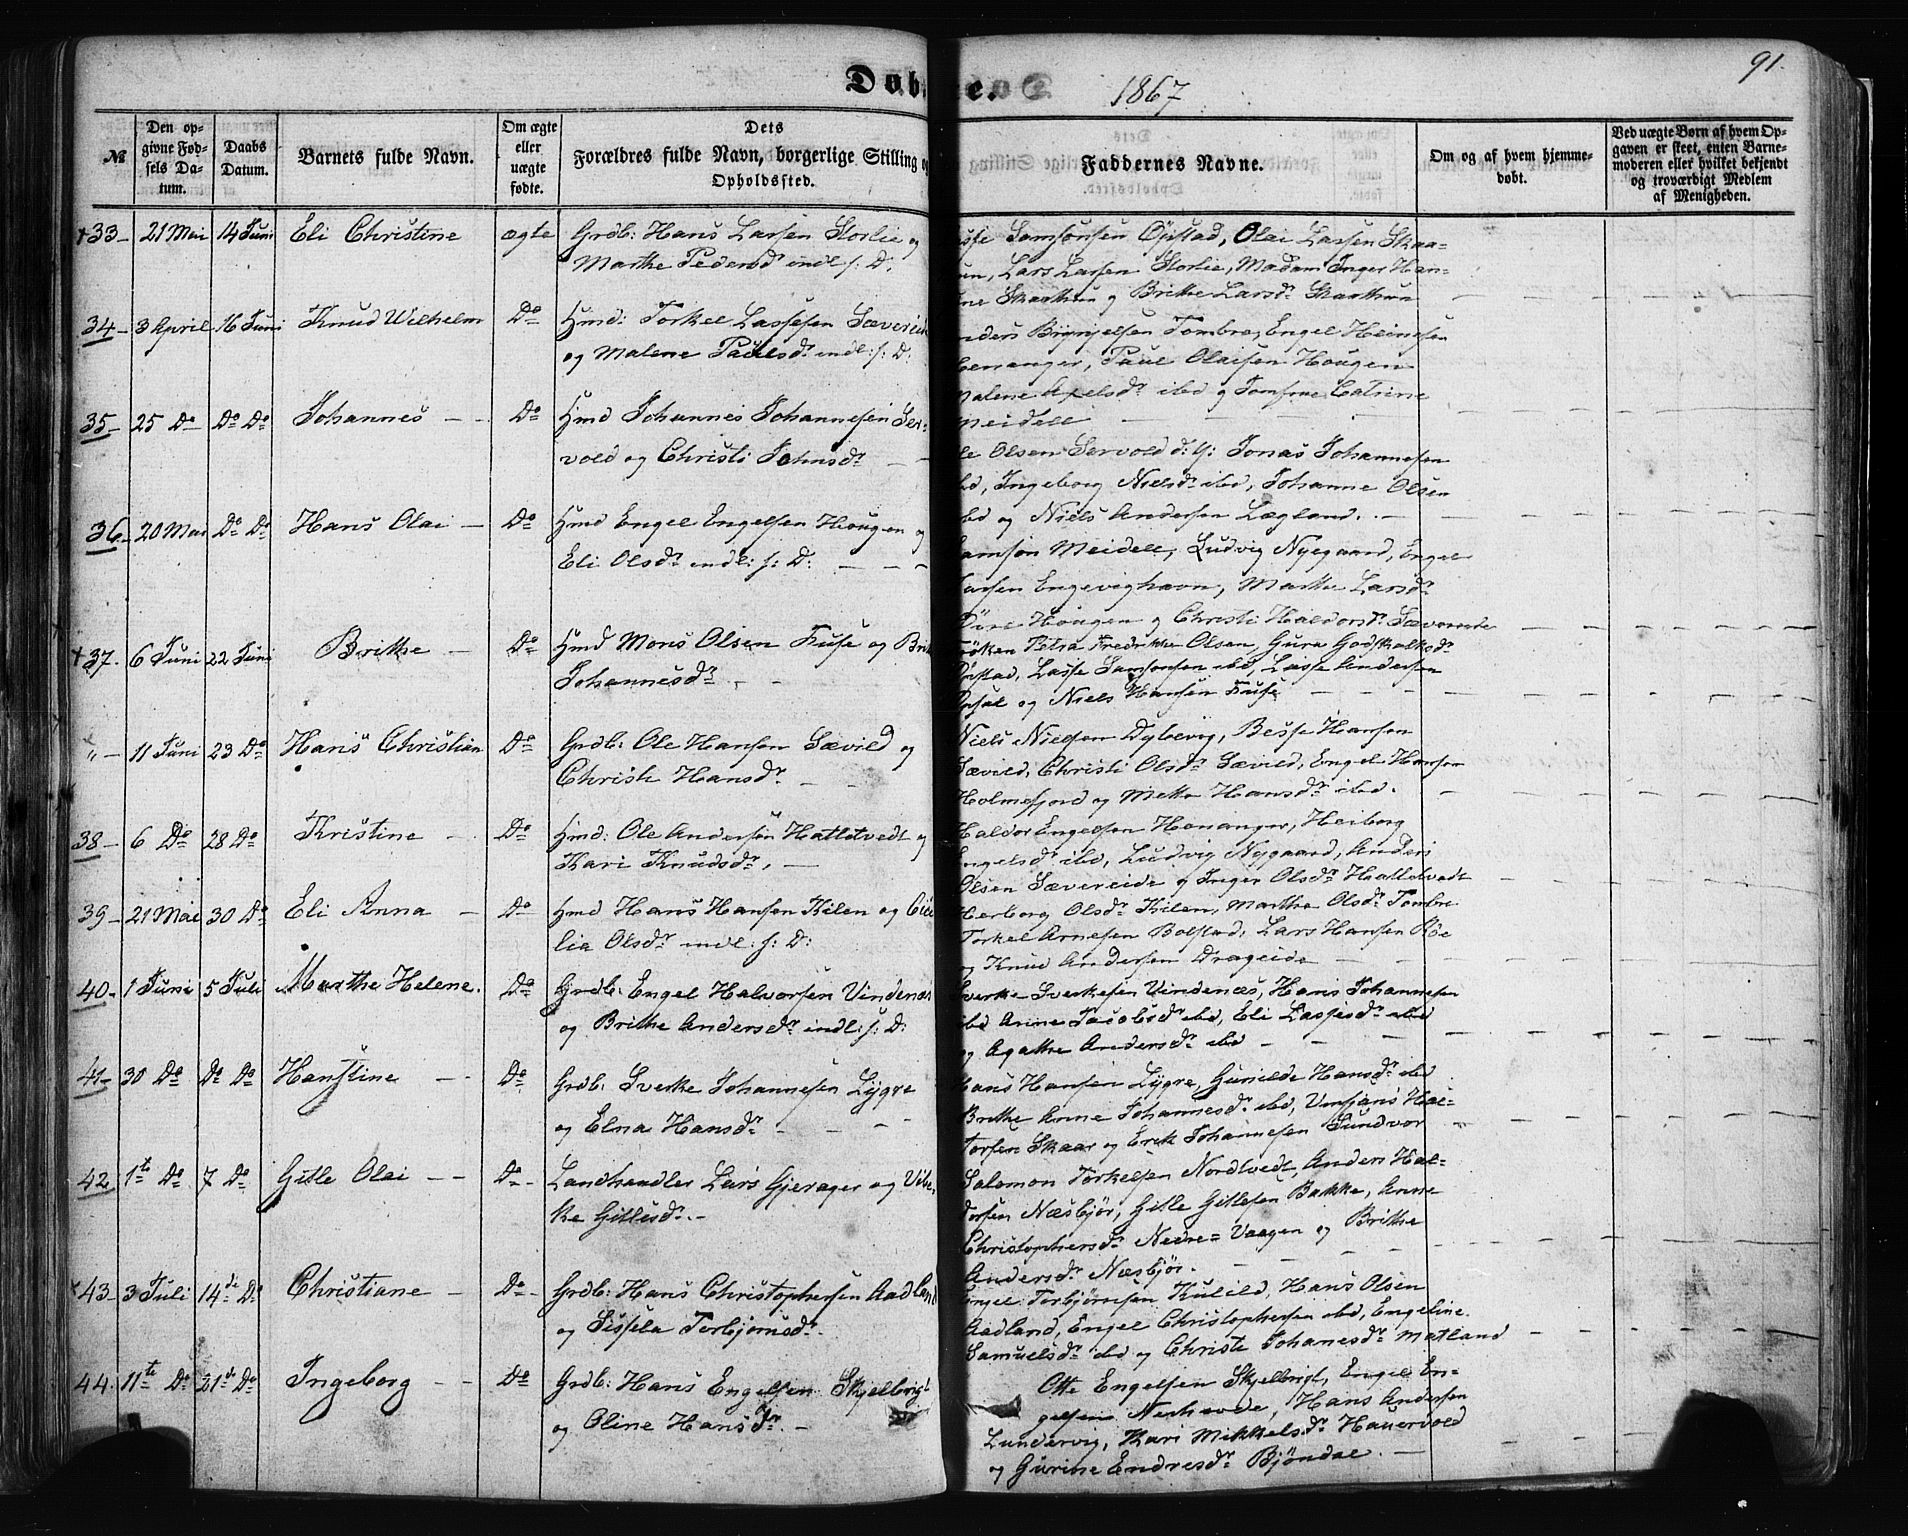 91.
Døb
e.
1867
№
Den opgivne Fødsels Datum.
Daabs Datum.
Barnets fulde Navn.
Om ægte eller uægte fødte.
Dets Forældres fulde Navn, borgerlige Stilling og Opholdssted.
Faddernes Navne.
Om og af hvem hjemmedøbt.
Ved uægte Børn af hvem Opgaven er skeet, enten Barnemoderen eller hvilket bekjendt og troværdigt Medlem af Menigheden.
+33- 21 Mai 14 Juni Eli Christine ægte Grdb: Hans Larsen Storlie og
Marthe Pedersdr indl: s: D.
Samsonsen Opstad, Olai Larsen Skaa=
Lars Larsen Storlie, Madam Inger Han=
Skaathun og Brithe Larsdr Skaathun
34- 3 April 16 Juni Knud Wilhelm Do Hmd: Torkel Lassesen Sævereid
og Malene Paulsdr indl: s: D:
Tombre, Engel Heinesen
Henanger, Paul Olaisen Hougen
Malene Axelsdr ibd og Jomfrue Catrine
Meidell
35- 25 Do Do Do Johannes - - Do Hmd Johannes Johannesen Ser=
vold og Christi Johnsdr - -
Ole Olsen Servold d: y: Jonas Johannesen
ibd, Ingeborg Nielsdr ibd, Johanne Olsen
ibd og Niels Andersen Lægland. -
36- 20 Mai Do Do Hans Olai - Do Hmd Engel Engelsen Hougen og
Eli Olsdr indl: s: D: - - -
Samson Meidell, Ludvig Nygaard, Engel
Larsen Engevighavn, Marthe Larsdr
Hougen og Christi Haldorsdr Sævereide
+37. 6 Juni 22 Juni Brithe - Do Hmd Mons Olsen Fuse og Brit
Johannesdr - -
Frøken Petra Fredrikke Olsen, Guro Godskalksdr
Opstad, Lasse Samsonsen ibd, Lasse Andersen
og Niels Hansen Fuse
" - 11 Juni 23 Do Hans Christian Do Grdb: Ole Hansen Sævild og
Christi Hansdr - -
Niels Nielsen Dybevig, Besse Hansen
Sævild, Christi Olsdr Sævild, Engel Hansen
Holmefjord og Mette Hansdr ibd.
38- 6 Do 28 Do Kristine - Do Hmd: Ole Andersen Hatletvedt og
Kari Knudsdr, -
Haldor Engelsen Henanger, Herborg
Engelsdr ibd, Ludvig Nygaard, Anders
Olsen Sævereide og Inger Olsdr Hatletvedt
39- 21 Mai 30 Do Eli Anna - Do Hmd Hans Hansen Kilen og Cici
lia Olsdr indl: s: D:
Herborg Olsdr Kilen, Marthe Olsdr Tombre
Torkel Arnesen Bolstad, Lars Hansen Röe
og Knud Andersen Drageide - - -
40- 1 Juni 5 Juli Marthe Helene. Do Grdb: Engel Halvorsen Vindenæs
og Brithe Andersdr indl: s: D:
Sverke Sverkesen Vindenæs, Hans Johannesen
ibd Anne Jacobsdr ibd, Eli Lassesdr ibd
og Agathe Andersdr ibd - - -
41- 30 Do Do Do Hanstine - - Do Grdb: Sverke Johannesen Lygre
og Elna Hansdr - - - -
Hans Hansen Lygre, Gunilde Hansdr ibd
Brithe Anne Johannesdr ibd, Vinsjans Hal=
torsen Skaar og Erik Johannesen Sundvor
42 1te Do 7 Do Gitle Olai - - Do - Landhandler Lars Gjerager og Vibe
ke Gitlesdr. -
Salomon Torkelsen Nordtvedt, Anders Hal=
dorsen Næsbjør, Gitle Gitlesen Bakke, Anne
Christophersdr Nedre=Vaagen og Brithe
Andersdr Næsbjør. - - - -
+43- 3 Juli 14de Do Christiane - Do - Grdb: Hans Christophersen Aadland
og Sissela Torbjørnsdr.
Engel Torbjørnsen Kulild, Hans Olsen
Aadland, Engel Christophersen ibd, Engeline
Samuelsdr ibd og Christi Johanesdr Matland
44. 11te Do 21de Do Ingeborg - - Do Grdb: Hans Engelsen Skjelbrigt
og Oline Hansdr. -
Otte Engelsen Skjelbrigt, Engel En=
gelsen Nerhovde, Hans Andersen
Lundervig, Kari Mikkelsdr Hauervold
og Gurine Endresdr Bjøndal. -